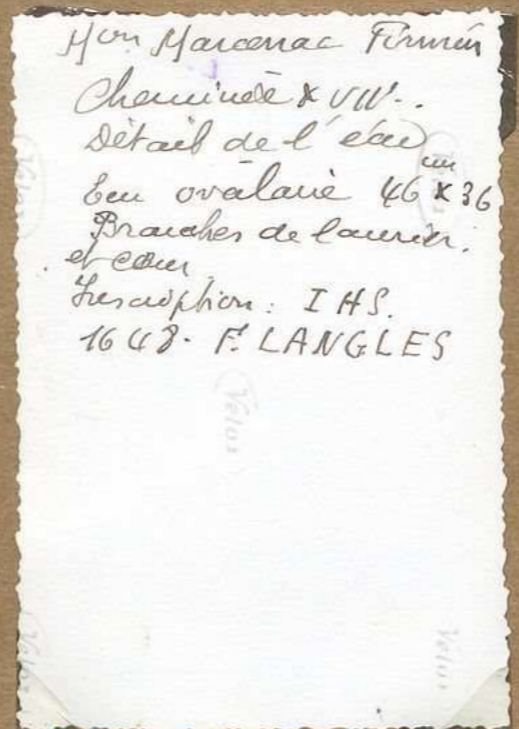 Mon Marcenac Firmin
Cheminée XVIIe.
Détail de l'écu
Ecu ovalaire 46 x 36 cm
Branches de laurier.
et cœur
Inscription: IHS.
1648. F. LANGLES
Velox
Velox
Velox
Velox
Velox